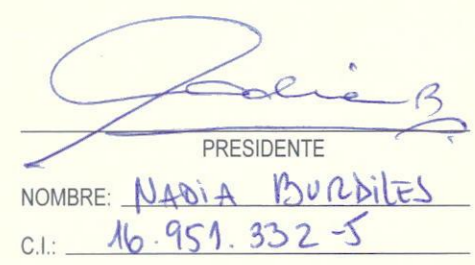 Nadia B
PRESIDENTE
NOMBRE: NADiA BURDILES
C.I.: 16.951.332-5